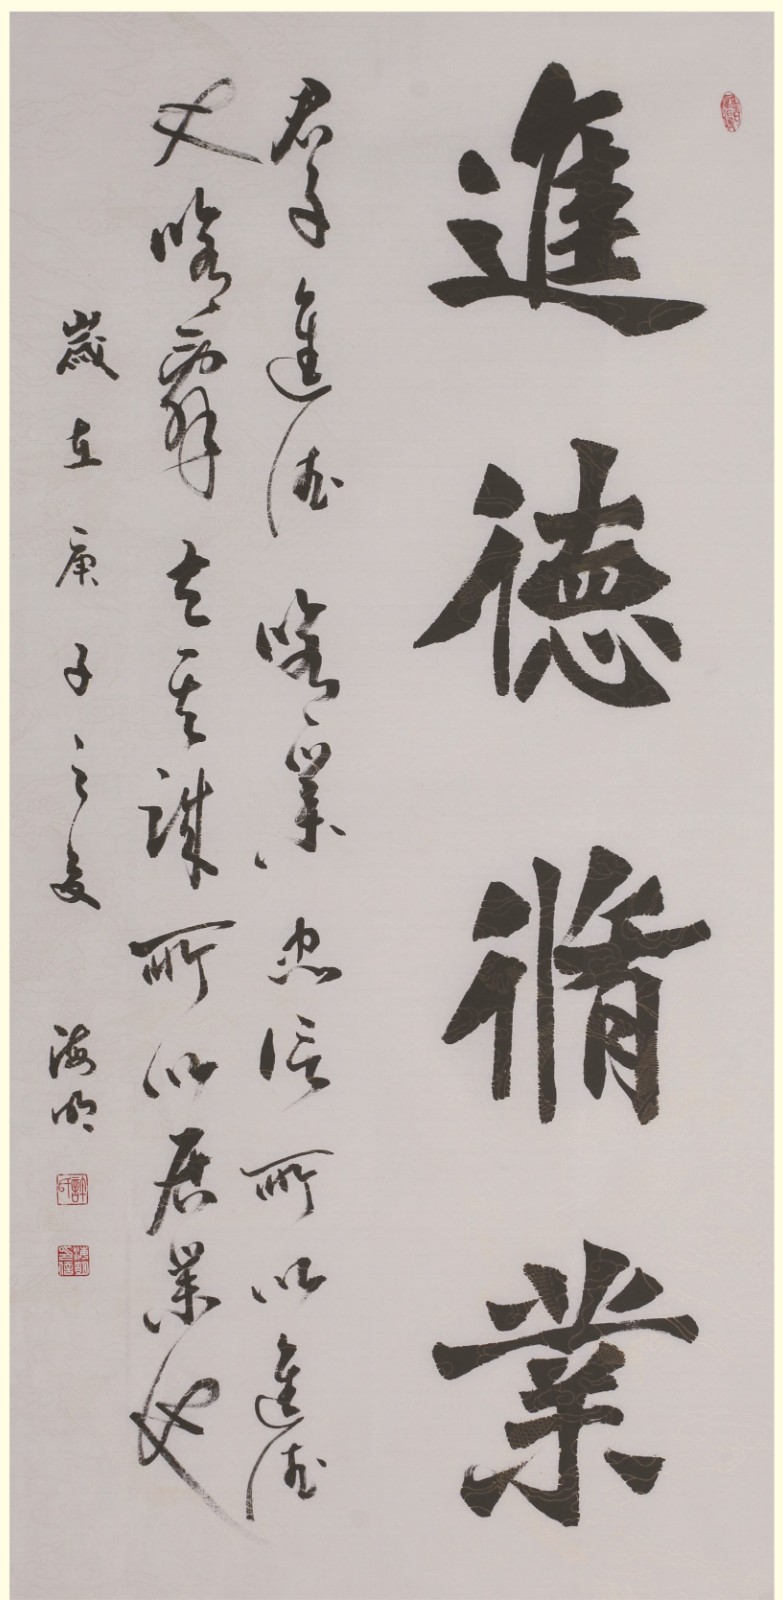 進德脩業
君子進德脩業忠信所以進德
也脩辭立其誠所以居業也
歲在庚子之夏 海明